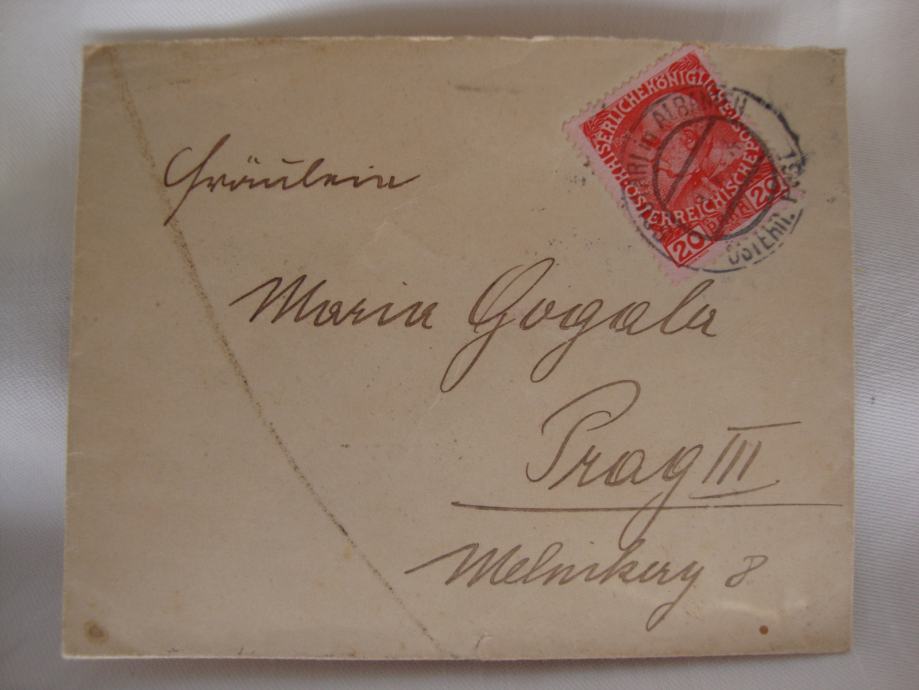 KAISERLICHE KÖNIGLICHE
ÖSTERREICHISCHE
20 20
IN ALBANIEN
ÖSTERR. POST
Fräulein
Maria Gogala
Prag III
8